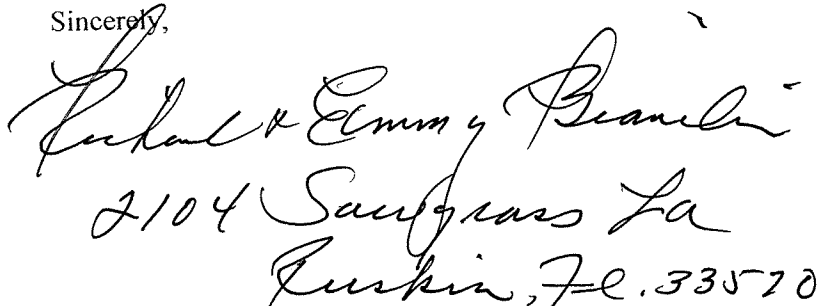 Sincerely,
Richard & Emmy
2104 Sawgrass La
Ruskin, Fl. 33570